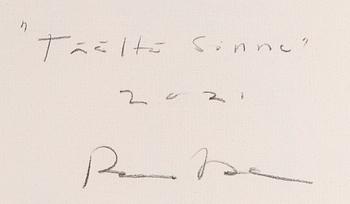 "Täältä sinne"
2021